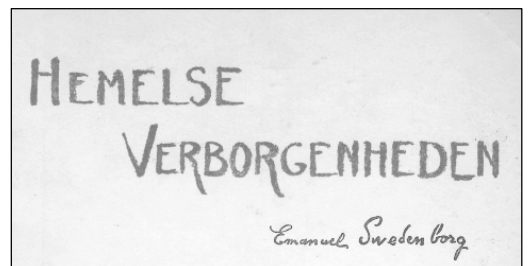 HEMELSE
VERBORGENHEDEN
Emanuel Swedenborg